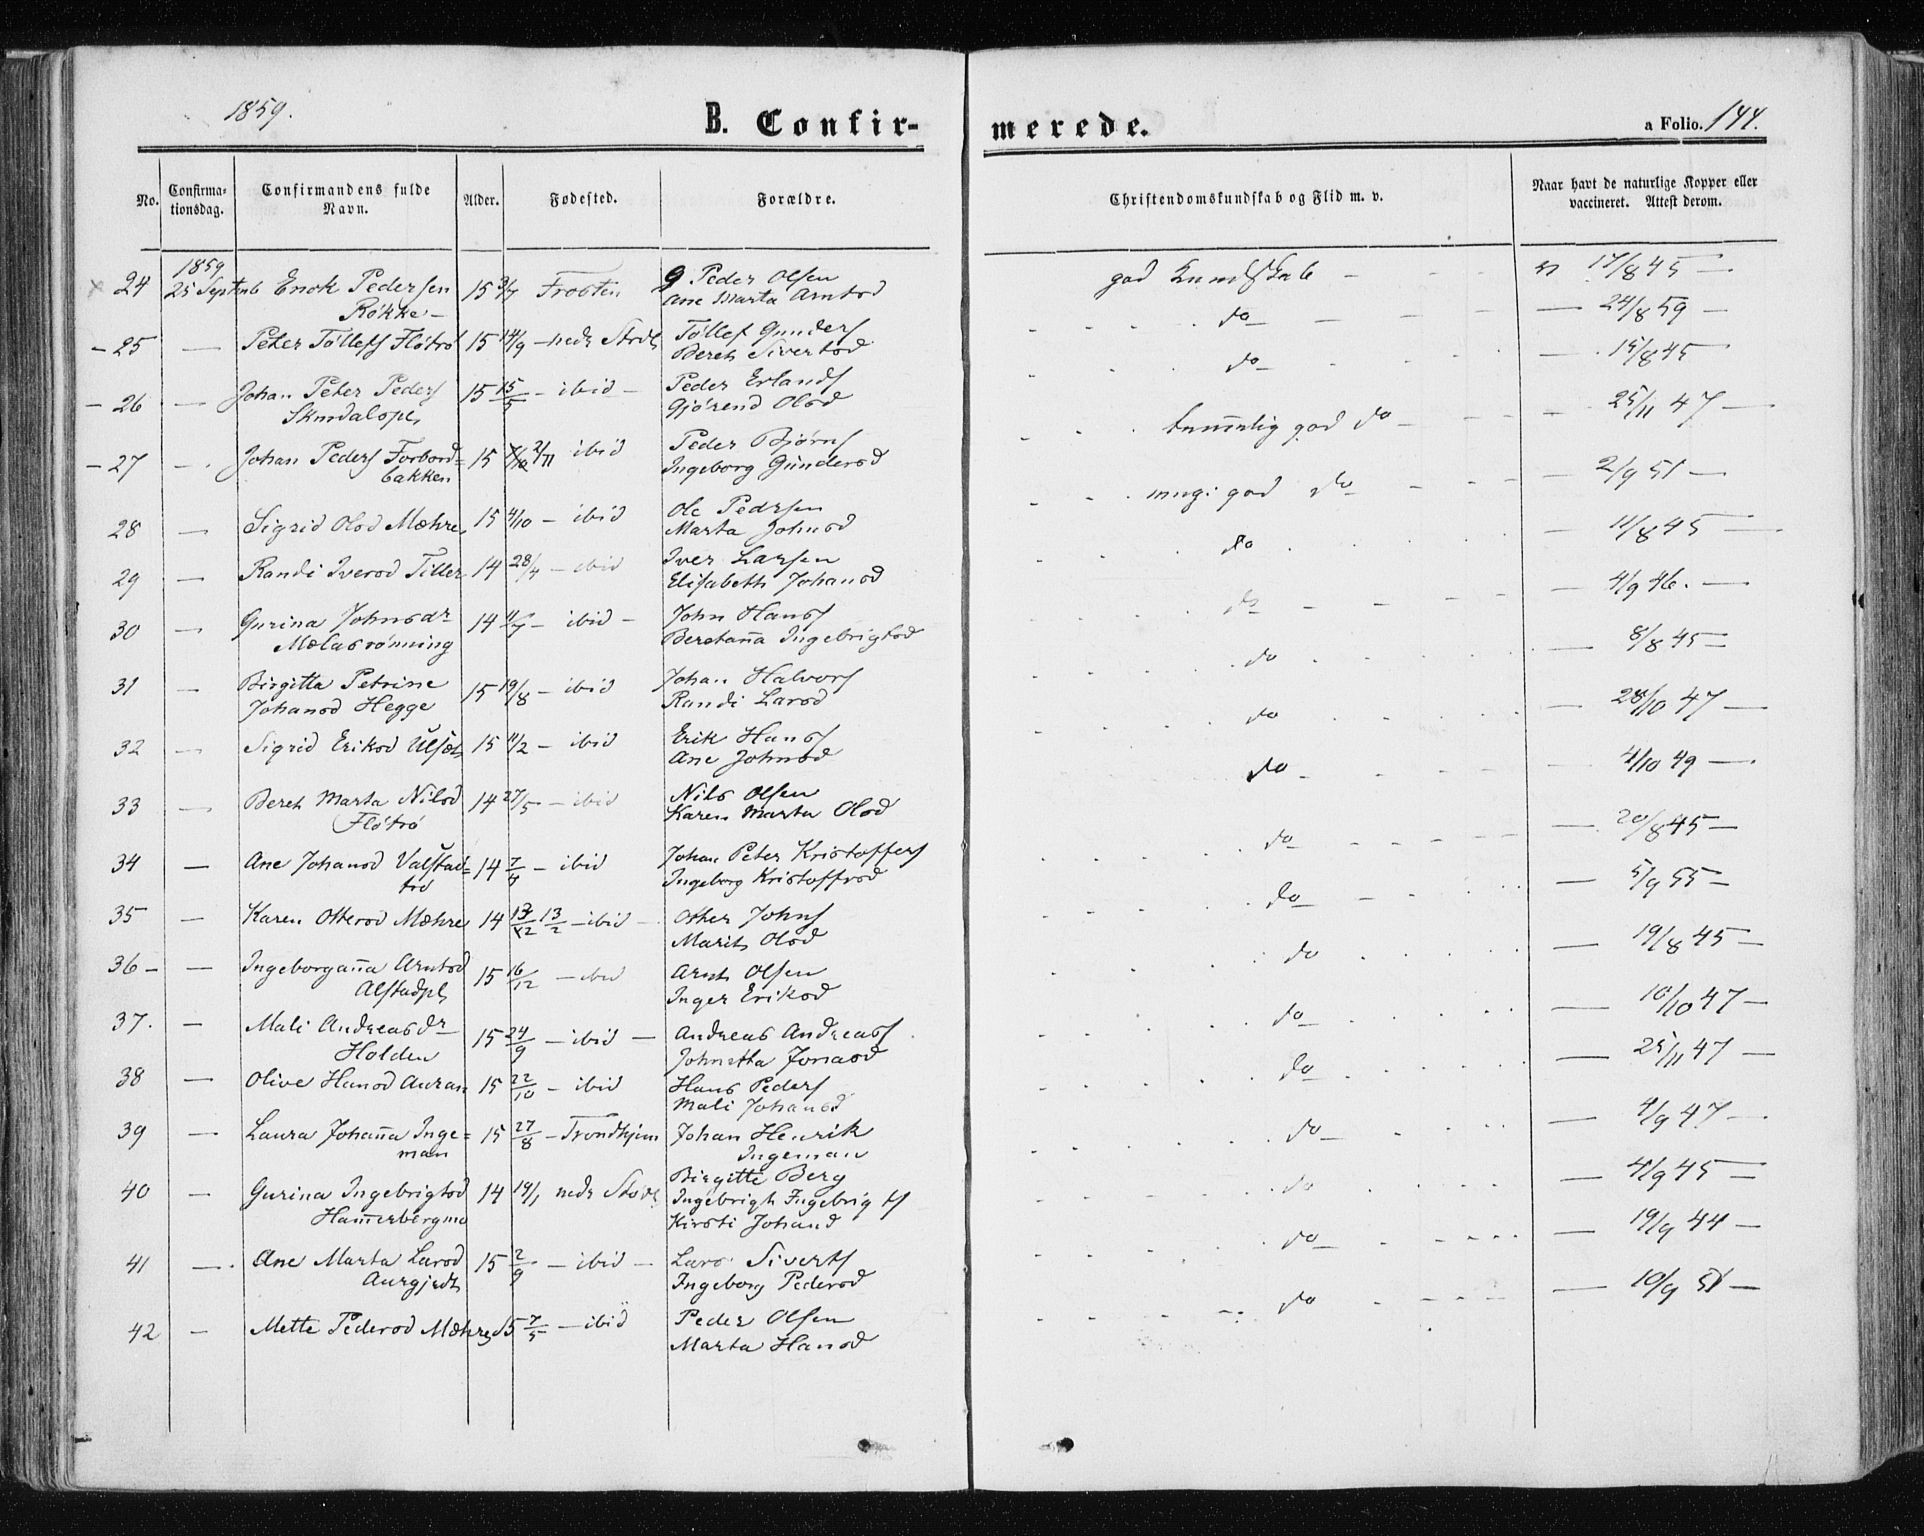 1859.
B. Confir-
merede.
a Folio. 144.
No.
Confirma-
tionsdag.
Confirmandens fulde
Navn.
Alder.
Fødested.
Forældre.
Christendomskundskab og Flid m. v.
Naar havt de naturlige Kopper eller
vaccineret. Attest derom.
1859
24 25 Septemb Enok Pedersen 15 3/7 Frosten Peder Olsen god Kundskab 17/8 45 —
Røkke — Ane Marta Arntsd
- 25 — Peter Tøllefs Fløtrø 15 14/9 — nedr Stodl Tøllef Gunders do 24/8 59 —
Beret Sivertsd
- 26 — Johan Peter Peders 15 15/5 — ibid — Peder Erlands do — 15/8 45
Gjørend Olsd
- 27 — Johan Peders Forbord= 15 2/11 ibid Peder Bjørns temmelig god do — 25/11 47 —
bakken Ingeborg Gundersd
28 — Sigrid Olsd Mæhre 15 4/10 — ibid Ole Pedrsen meg: god do — 2/9 51 —
Marta Johnsd
29 — Randi Iversd Tiller 14 28/4 — ibid Iver Larsen do — 11/8 45 —
Elisabeth Johansd
30 — Gurina Johnsdr 14 11/7 — ibid — John Hans do — 4/9 46. —
Mælasrønning Beretanna Ingebrigtsd
31 — Birgitta Petrine 15 19/8 — ibid Johan Halvors do — 8/8 45 —
Johansd Hegge Randi Larsd
32 — Sigrid Eriksd Ulset 15 11/2 — ibid Erik Hans do — 28/10 47 —
Ane Johnsd
33 — Beret Marta Nilsd 14 27/5 — ibid Nils Olsen do — 4/10 49 —
Fløtrø Karen Marta Olsd
34 — Ane Johansd Valstad= 14 7/4 — ibid Johan Peter Kristoffers do — 20/8 45 —
trø Ingeborg Kristoffrsd
35 — Karen Ottersd Mæhre 14 13/2 — ibid Otter Johns do — 5/9 55 —
Marit Olsd
36 — — Ingeborganna Arntsd 15 16/12 — ibid Arnt Olsen do — 19/8 45 —
Alstadpl Inger Eriksd
37. — Mali Andreasdr 15 24/9 — ibid — Andreas Andreass do — 10/10 47 —
Holden Johnetta Jonasd
38 — Olive Hansd Auran 15 22/10 — ibid Hans Peders do — 25/11 47 —
Mali Johansd
39 — Laura Johanna Inge= 15 27/8 — Trondhjem Johan Henrik do — 4/9 47 —
man Ingeman
Birgitte Berg
40 — Gurina Ingebrigtsd 14 19/1 nedr Stodl Ingebrigt Ingebrigts do — 4/9 45 —
Hammerbergmo Kirsti Johansd
41 — Ane Marta Larsd 15 2/9 — ibid — Lars Siverts do — 19/9 44 —
Aurgjedt Ingeborg Pedersd
42 — Mette Pedersd Mæhre 15 7/5 — ibid Peder Olsen do — 10/9 51 —
Marta Hansd